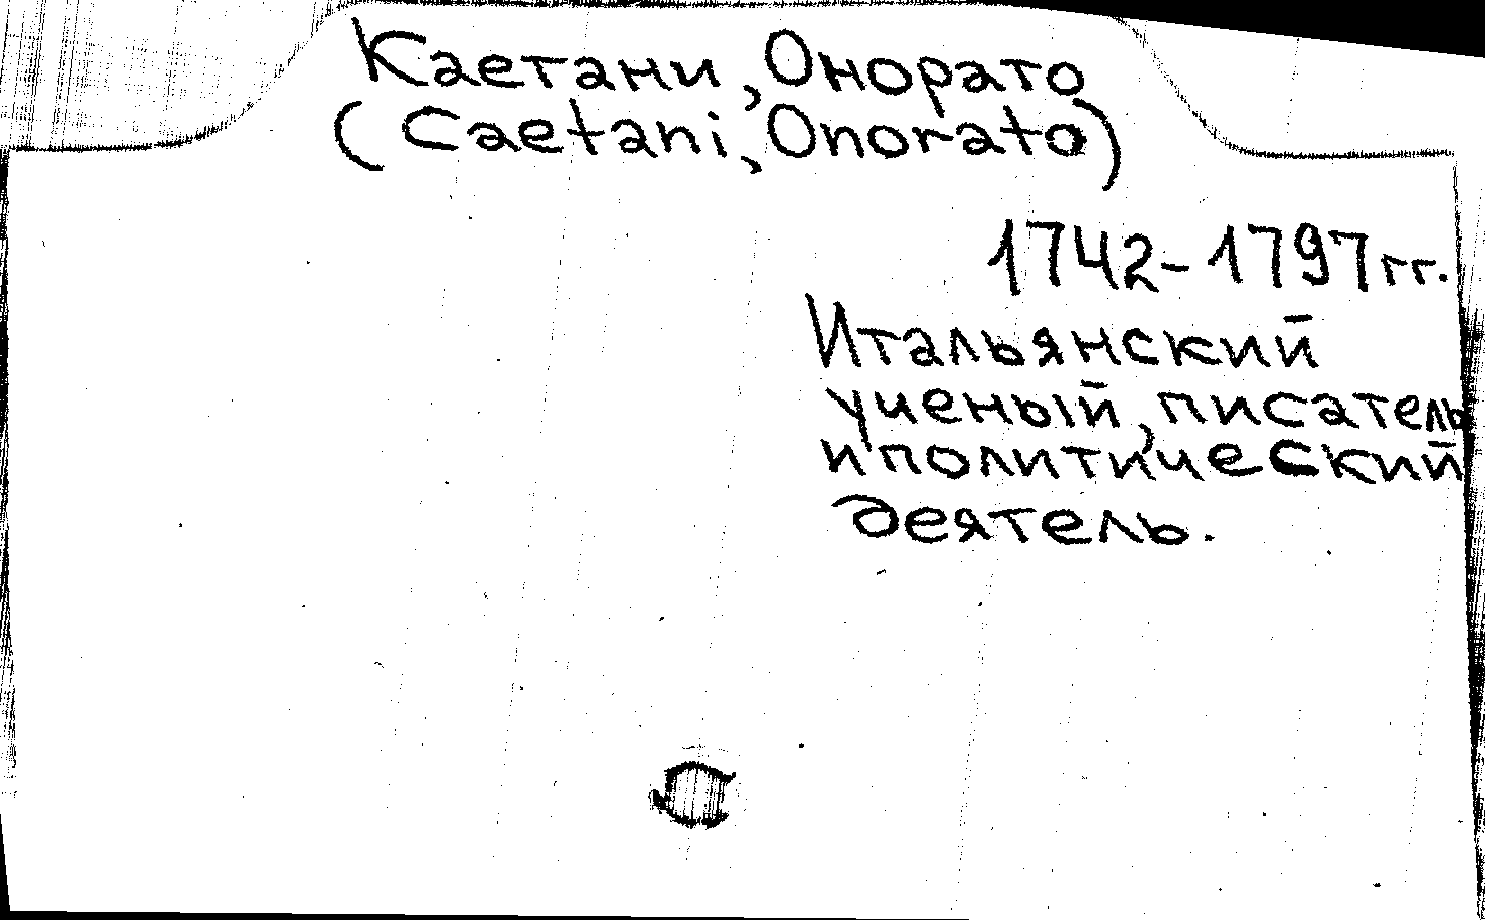 Каетани, Онорато
(Caetani, Onorato)
1742-1797 гг.
Итальянский
ученый, писатель
и политический
деятель.